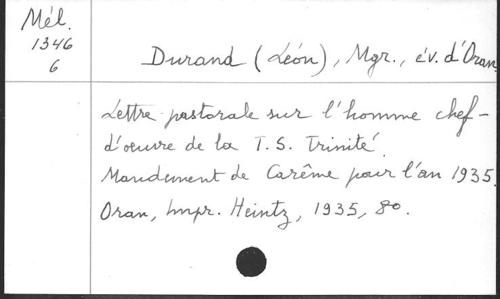 Mél.
1346
6
Durand (Léon), Mgr., év. d'Oran.
Lettre pastorale sur l'homme chef-
d'oeuvre de la T. S. Trinité.
Mandement de Carême pour l'an 1935.
Oran, Impr. Heintz, 1935, 8º.